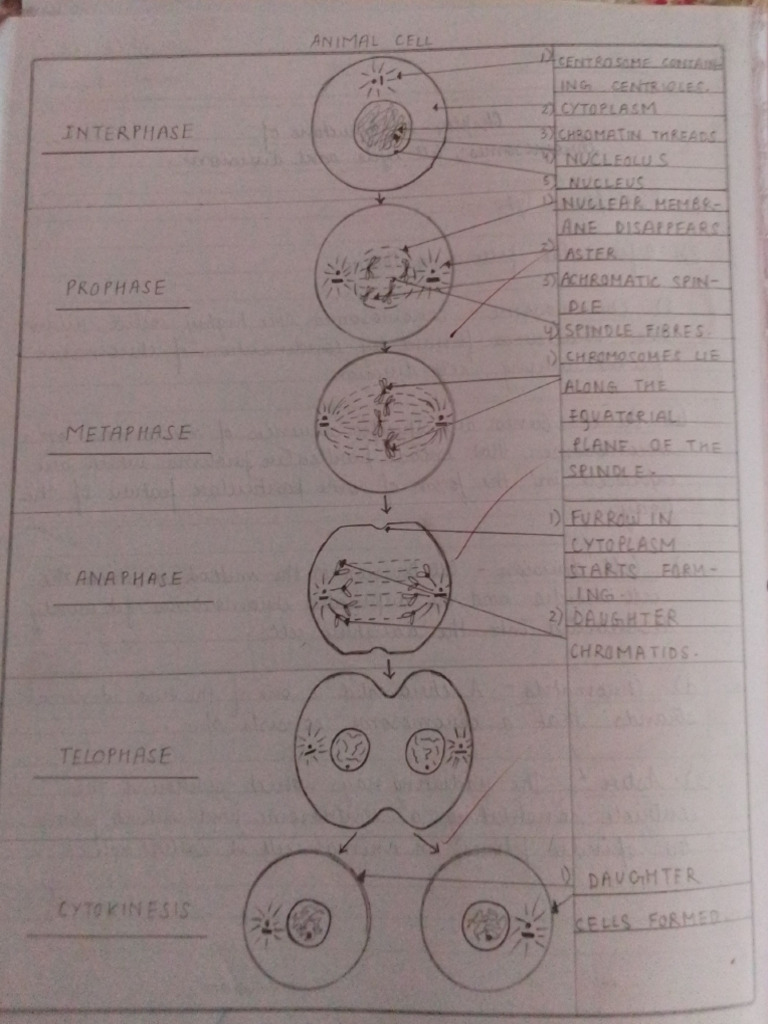 ANIMAL CELL
INTERPHASE
1) CENTROSOME CONTAIN-
ING CENTRIOLES.
2) CYTOPLASM
3) CHROMATIN THREADS
4) NUCLEOLUS
5) NUCLEUS
PROPHASE
1) NUCLEAR MEMBR-
ANE DISAPPEARS
2) ASTER
3) ACHROMATIC SPIN-
DLE
4) SPINDLE FIBRES.
METAPHASE
1) CHROMOSOMES LIE
ALONG THE
EQUATORIAL
PLANE OF THE
SPINDLE.
ANAPHASE
1) FURROW IN
CYTOPLASM
STARTS FORM-
ING.
2) DAUGHTER
CHROMATIDS.
TELOPHASE
CYTOKINESIS
1) DAUGHTER
CELLS FORMED.